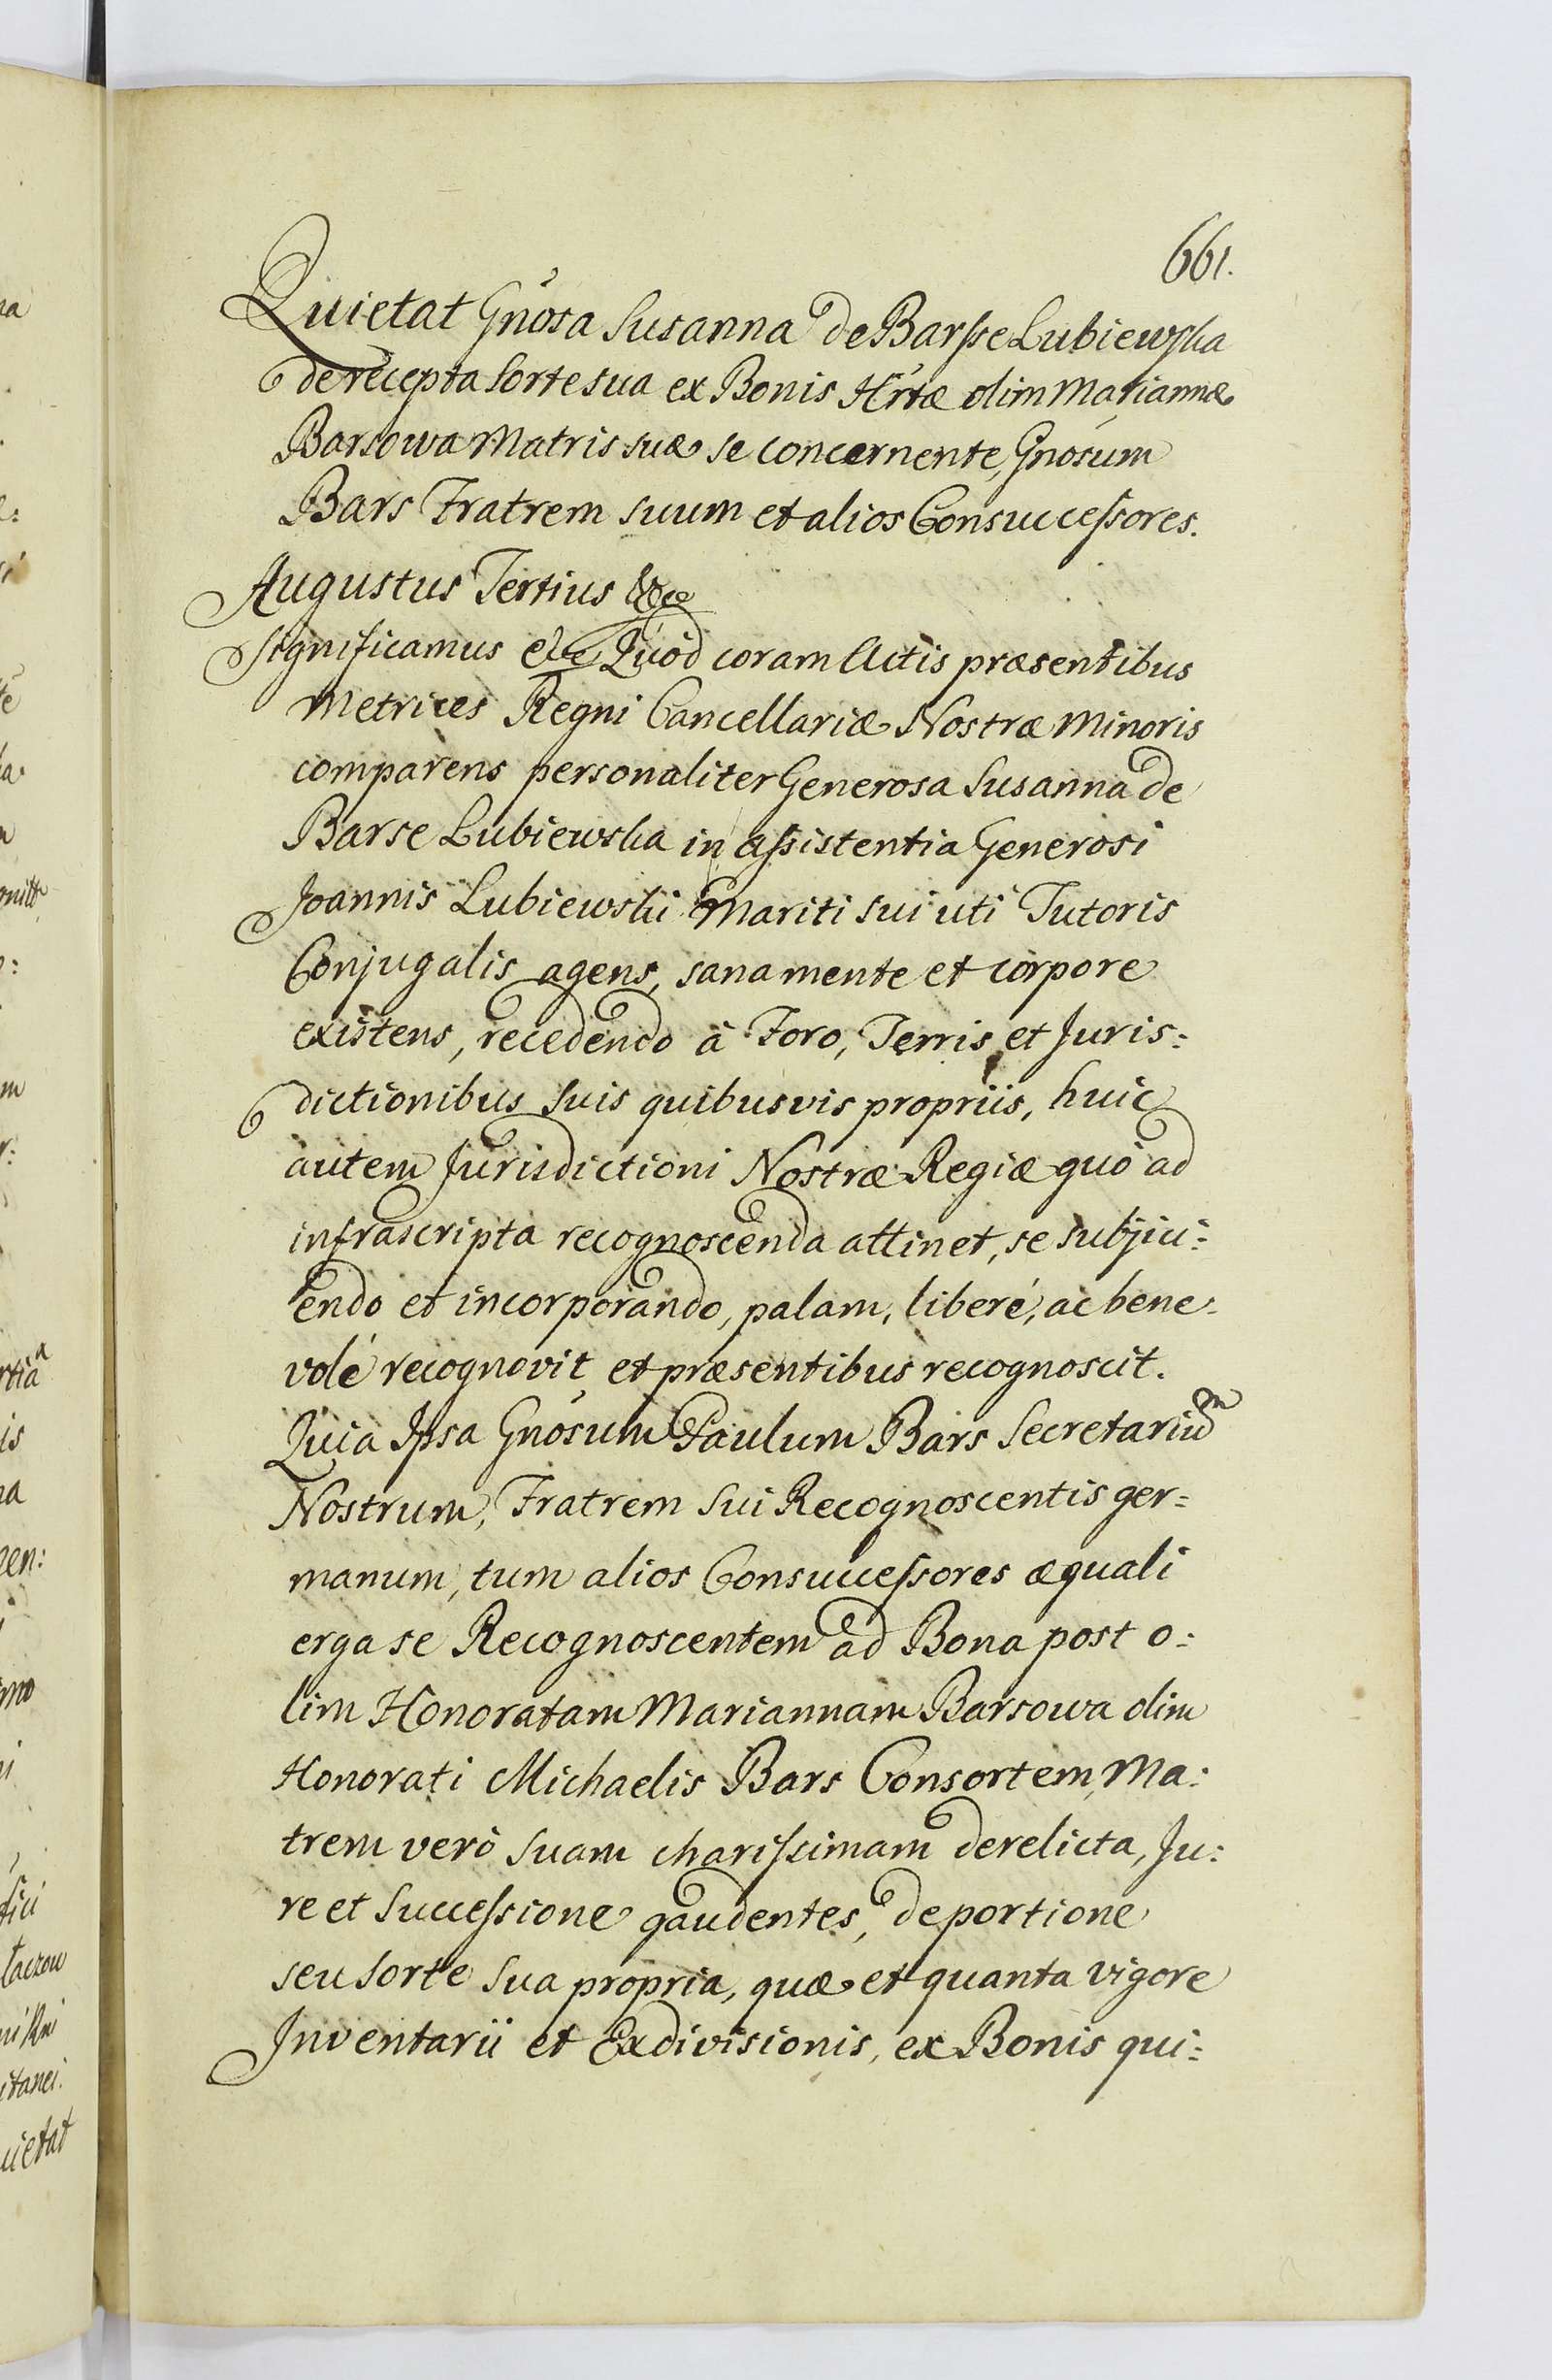 661.
Quietat Gnosa Susanna de Barsse Lubiewska
de recepta Sorte sua ex Bonis Hrtæ olim Mariannæ
Barsowa Matris suæ se concernente, Gnosum
Bars Fratrem suum et alios Consuccessores.
Augustus Tertius &ce
Significamus etc Quod coram Actis præsentibus
Metrices Regni Cancellariæ Nostræ Minoris
comparens personaliter Generosa Susanna de
Barse Lubiewska in assistentia Generosi
Joannis Lubiewski Mariti sui uti Tutoris
Conjugalis agens, sana mente et corpore
existens, recedendo à Foro, Terris et Juris:
dictionibus suis quibusvis propriis, huic
autem Jurisdictioni Nostræ Regiæ quò ad
infrascripta recognoscenda attinet, se subjici:
endo et incorporando, palam, liberé, ac bene:
volé recognovit et præsentibus recognoscit.
Quia Ipsa Gnosum Paulum Bars Secretarium
Nostrum, Fratrem sui Recognoscentis ger=
manum, tum alios Consuccessores æquali
erga se Recognoscentem ad Bona post o:
lim Honoratam Mariannam Barsowa olim
Honorati Michaelis Bars Consortem, Ma:
trem verò suam charissimam derelicta, Ju:
re et Successione gaudentes, de portione
seu Sorte sua propria, quæ et quanta vigore
Inventarii et Exdivisionis, ex Bonis qui: